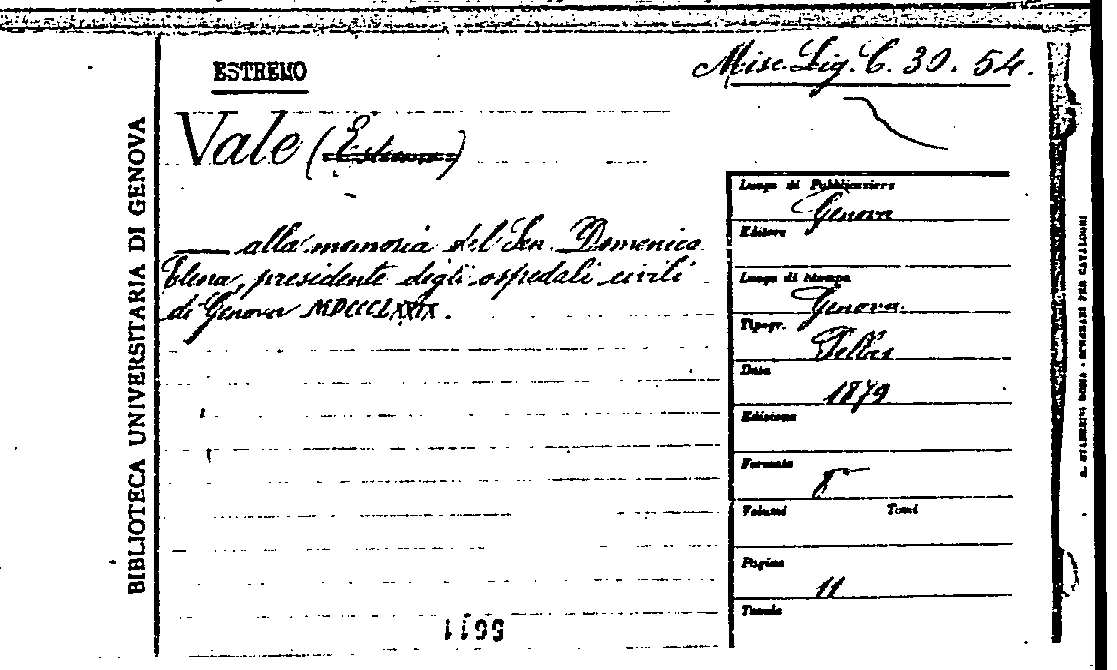 ESTREMO
Misc. Lig. C. 30. 54.
Vale (Estremo)
BIBLIOTECA UNIVERSITARIA DI GENOVA
— alla memoria del Sen. Domenico
Elena, presidente degli ospedali civili
di Genova MDCCCLXXIX.
Luogo di Pubblicazione
Genova
Editore
Luogo di stampa
Genova.
Tipogr.
Pellas
Data
1879
Edizione
Formato
8°
Volumi Tomi
Pagine
11
Tavole